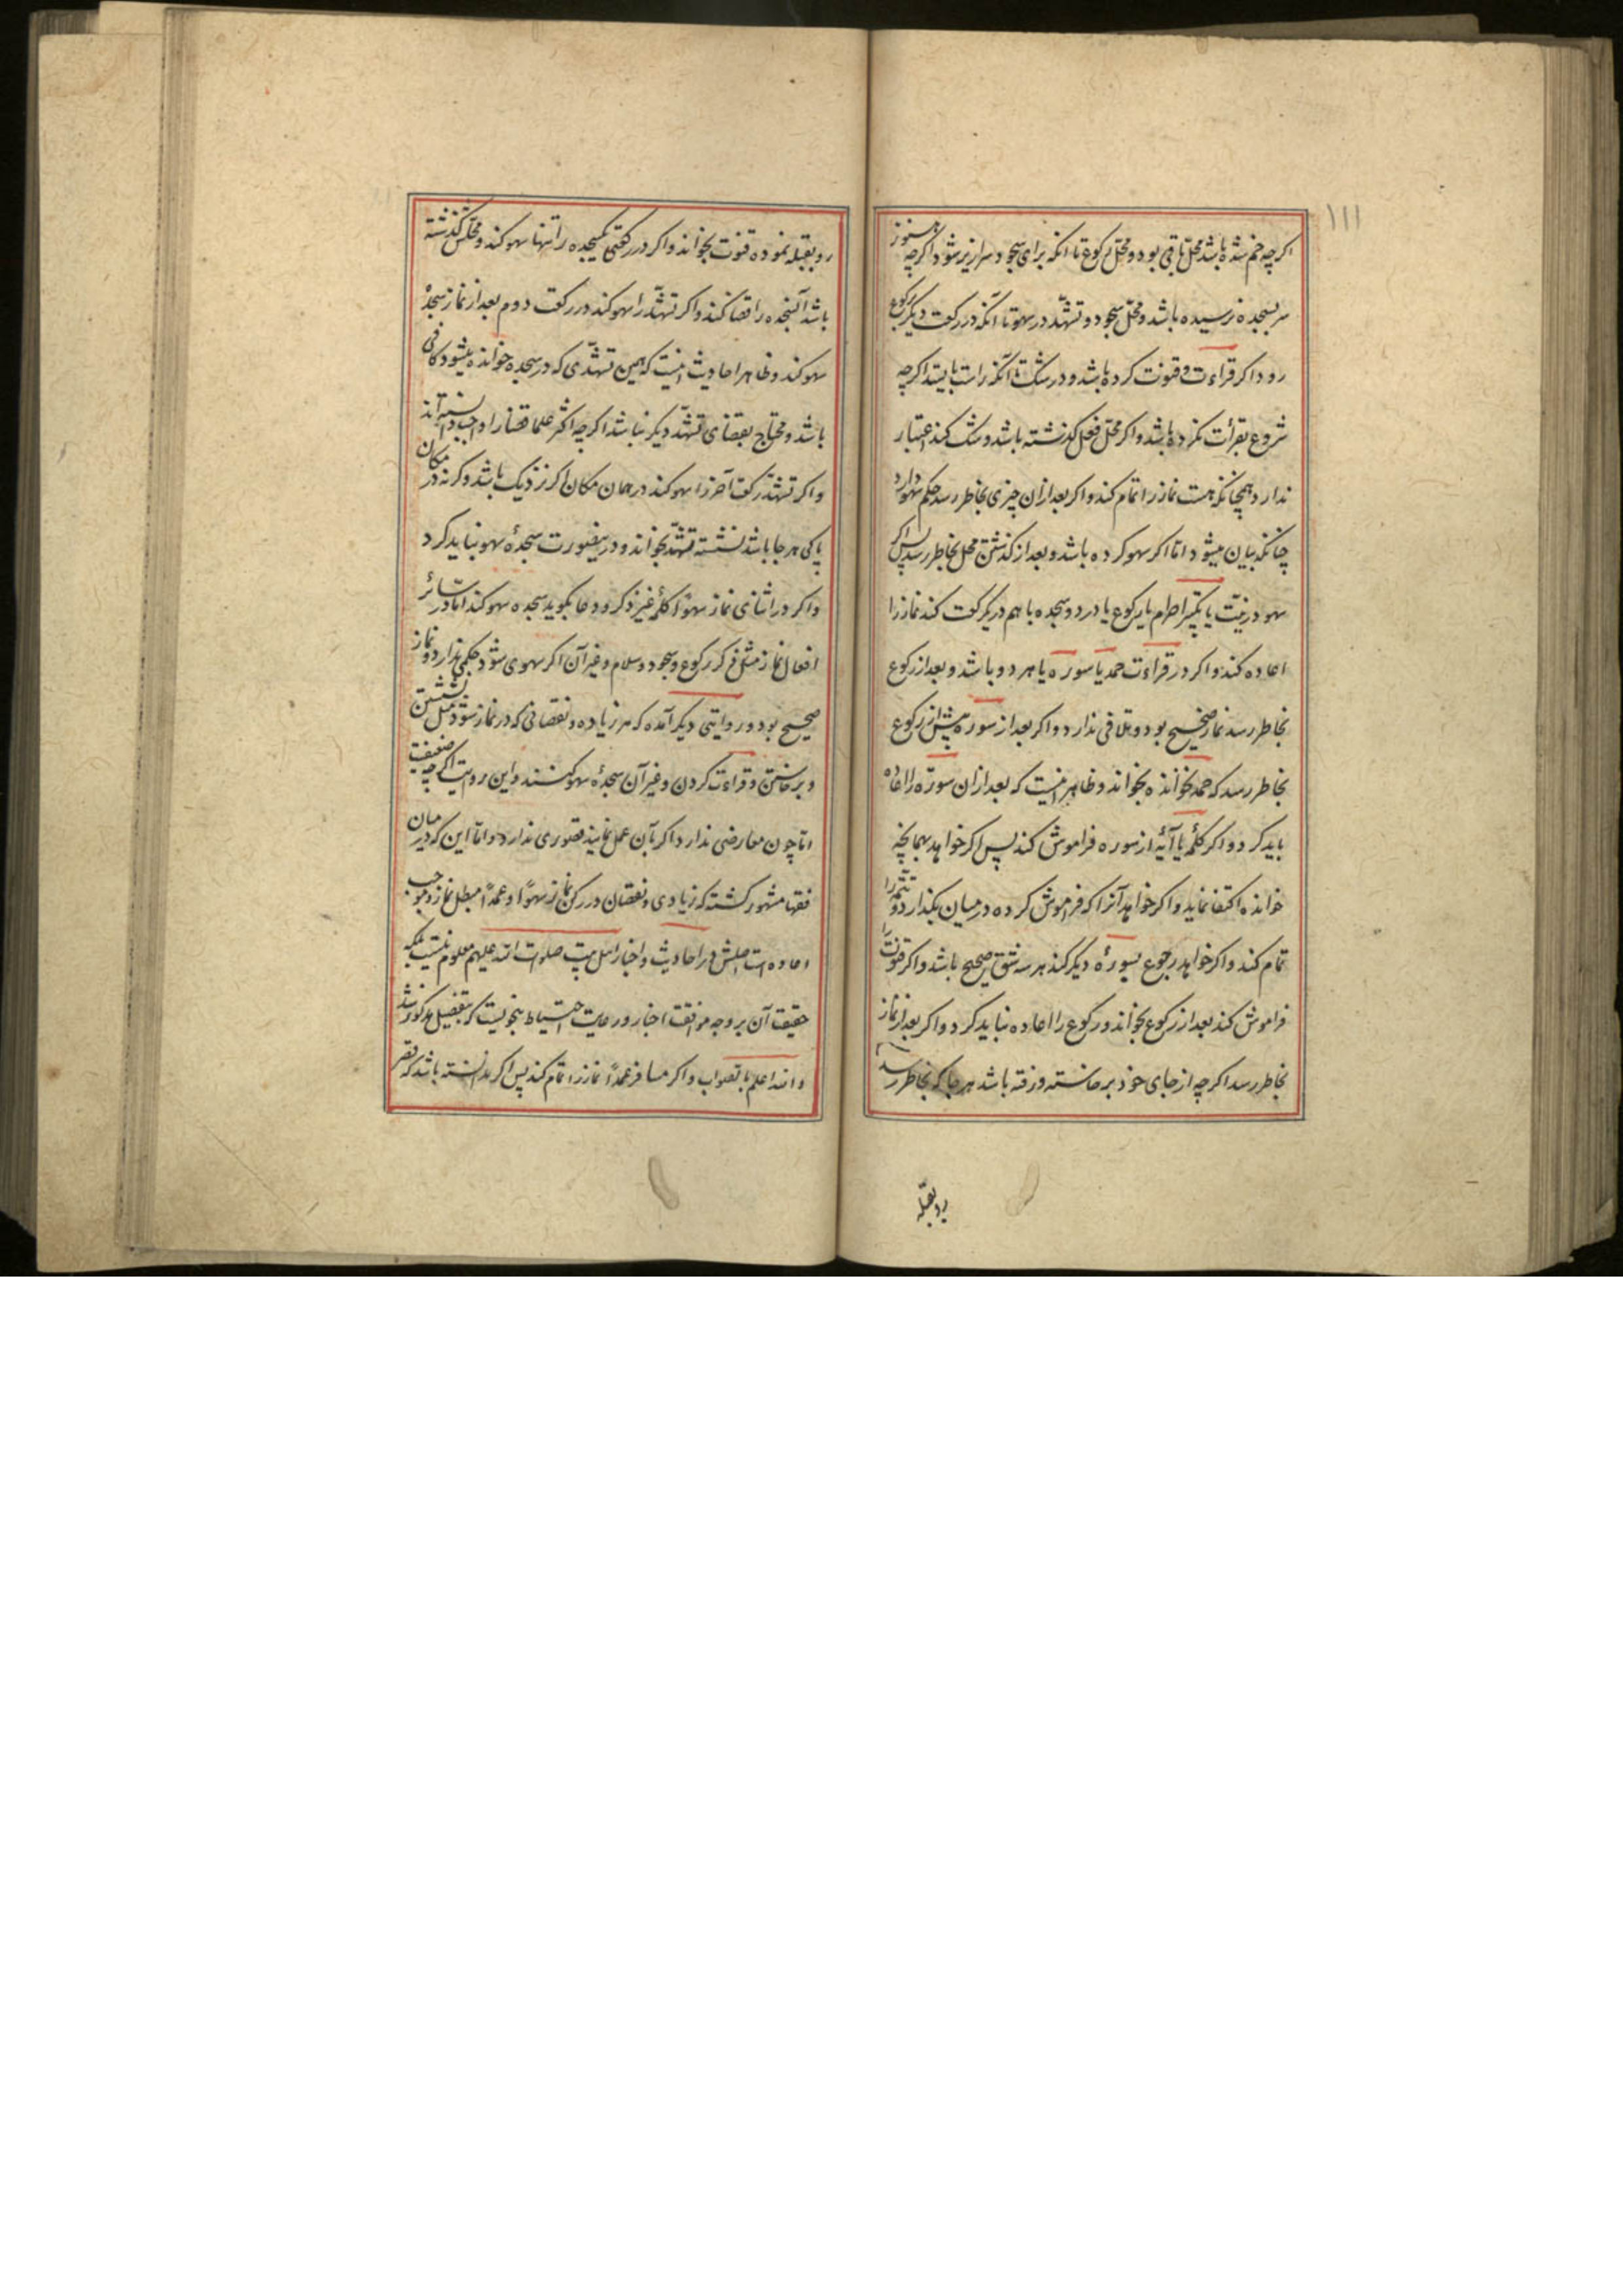 ۱۱۱
اکرچه خم شده باشد محل باقی بود و محل رکوع تا انکه برای سجود سرازیر شود و اکرچه هنوز
سر بسجده نرسیده باشد و محل سجود و تشهّد در سهو تا آنکه در رکعت دیکر برکوع
رود اکر قراءت و قنوت کرده باشد و در شک تا آنکه راست بایستد اکرچه
شروع بقرأت نکرده باشد و اکر محل فعل کذشته باشد و شک کند اعتبار
ندارد همچنانکه هست نماز را تمام کند و اکر بعد ازان چیزی بخاطر رسد حکم سهو دارد
چنانکه بیان میشود امّا اکر سهو کرده باشد و بعد از کذشتن محل بخاطر رسد پس اکر
سهو در نیّت یا تکبیر احرام یا رکوع یا در دو سجده با هم در یکرکعت کند نماز را
اعاده کند و اکر در قراءت حمد یا سوره یا هر دو باشد و بعد از رکوع
بخاطر رسد نماز صحیح بود و تلافی ندارد و اکر بعد از سوره پیش از رکوع
بخاطر رسد که حمد نخوانده بخواند و ظاهر اینست که بعد ازان سوره را اعاده
باید کرد و اکر کلمۀ یا آیۀ از سوره فراموش کند پس اکر خواهد بهمانچه
خوانده اکتفا نماید و اکر خواهد آنرا که فراموش کرده در میان بکذارد و تتمه را
تمام کند و اکر خواهد رجوع بسورۀ دیکر کند هر سه شق صحیح باشد و اکر قنوت را
فراموش کند بعد از رکوع بخواند و رکوع را اعاده نباید کرد و اکر بعد از نماز
بخاطر رسد اکرچه از جای خود برخاسته و رفته باشد هر جا که بخاطر رسد
رو بقبله
رو بقبله نموده قنوت بخواند و اکر در رکعتی یکسجده را تنها سهو کند و محلش کذشته
باشد آنسجده را قضا کند و اکر تشهّد را سهو کند در رکعت دوم بعد از نماز سجدۀ
سهو کند و ظاهر احادیث اینست که همین تشهّدی که در سجده خوانده میشود کافی
باشد و محتاج بقضای تشهّد دیکر نباشد اکرچه اکثر علما قضا را واجب دانسته‌اند
و اکر تشهّد رکعت آخر را سهو کند در همان مکان اکر نزدیک باشد وکرنه در مکان
پاکی هر جا باشد نشسته تشهّد بخواند و در ینصورت سجدۀ سهو نباید کرد
و اکر در اثنای نماز سهواً کلمۀ غیر ذکر و دعا بکوید سجده سهو کند امّا در سائر
افعال نماز مثل ذکر رکوع و سجود و سلام و غیر آن اکر سهوی شود حکمی ندارد و نماز
صحیح بود و روایتی دیکر آمده که هر زیاده و نقصانی که در نماز شود مثل نشستن
و برخاستن و قراءت کردن و غیر آن سجدۀ سهو کنند و این روایت اکرچه ضعیفست
امّا چون معارضی ندارد اکر بآن عمل نمایند قصوری ندارد و امّا این که در میان
فقها مشهور کشته که زیادی و نقصان در رکن نماز سهواً و عمداً مبطل نماز و موجب
اعاده است اصلش در احادیث و اخبار اهل بیت صلوات الله علیهم معلوم نیست بلکه
حقیقت آن بر وجه موافقت اخبار و رعایت احتیاط بنحویست که بتفصیل مذکور شد
و الله اعلم بالصواب و اکر مسافر عمداً نماز را تمام کند پس اکر دانسته باشد که قصر